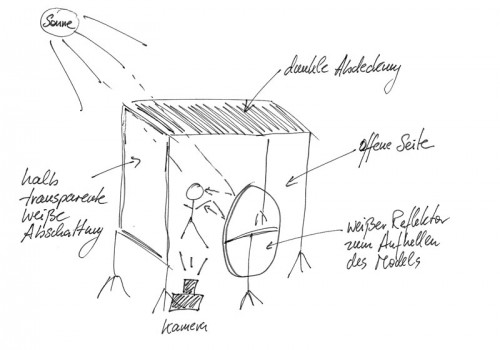 Sonne
dunkle Abdeckung
offene Seite
halb
transparente
weiße
Abschattung
weißer Reflektor
zum Aufhellen
des Models
Kamera